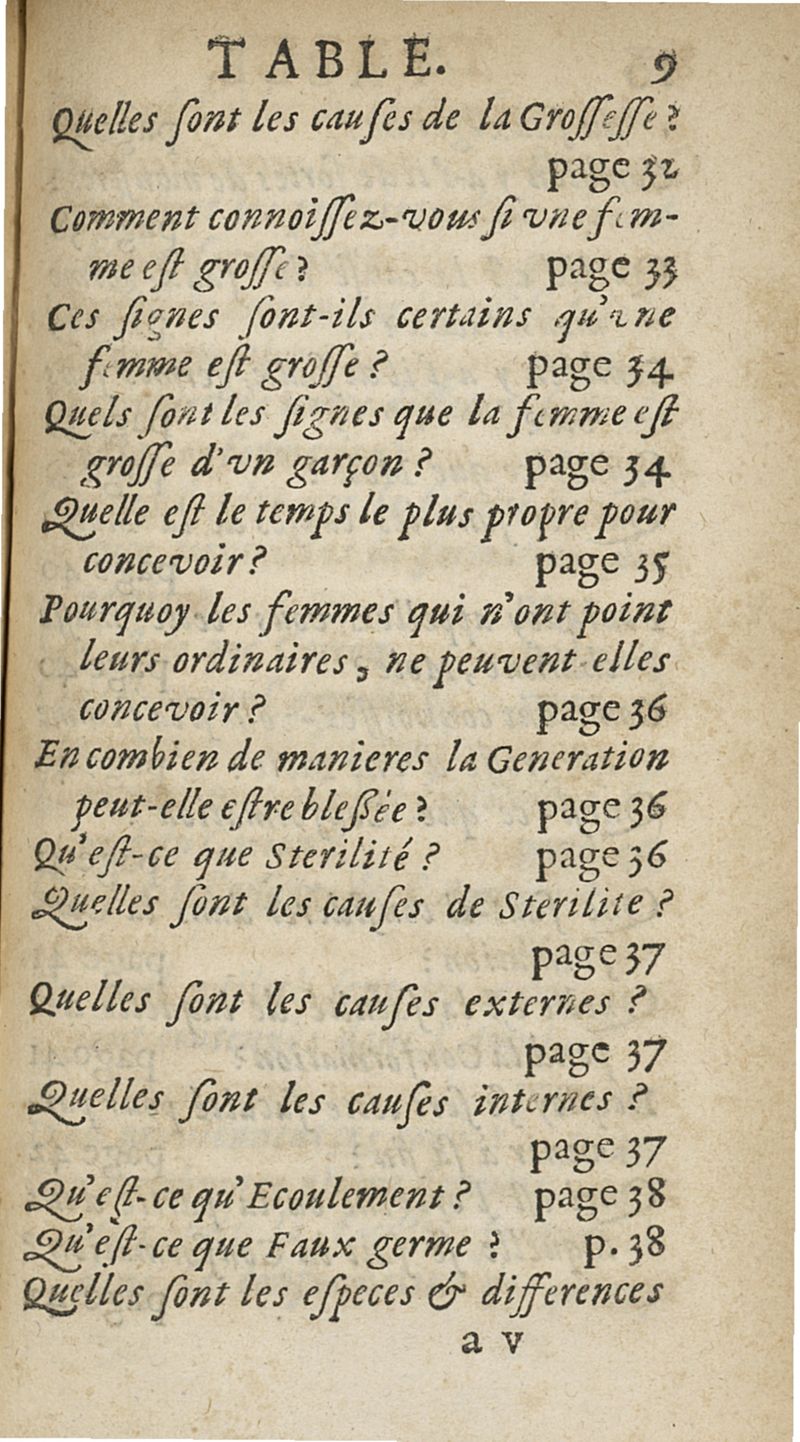 TABLE. 9
Quelles ſont les cauſes de la Groſſeſſe ?
page 32
Comment connoiſſez-vous ſi vne fem-
me eſt groſſe ? page 33
Ces ſignes ſont-ils certains qu'vne
femme eſt groſſe ? page 34
Quels ſont les ſignes que la femme eſt
groſſe d'vn garçon ? page 34
Quelle eſt le temps le plus propre pour
concevoir ? page 35
Pourquoy les femmes qui n'ont point
leurs ordinaires, ne peuvent elles
concevoir ? page 36
En combien de manieres la Generation
peut-elle eſtre bleßée ? page 36
Qu'eſt-ce que Sterilité ? page 36
Quelles ſont les cauſes de Sterilite ?
page 37
Quelles ſont les cauſes externes ?
page 37
Quelles ſont les cauſes internes ?
page 37
Qu'eſt-ce qu'Ecoulement ? page 38
Qu'eſt-ce que Faux germe ? p. 38
Quelles ſont les eſpeces & differences
a v